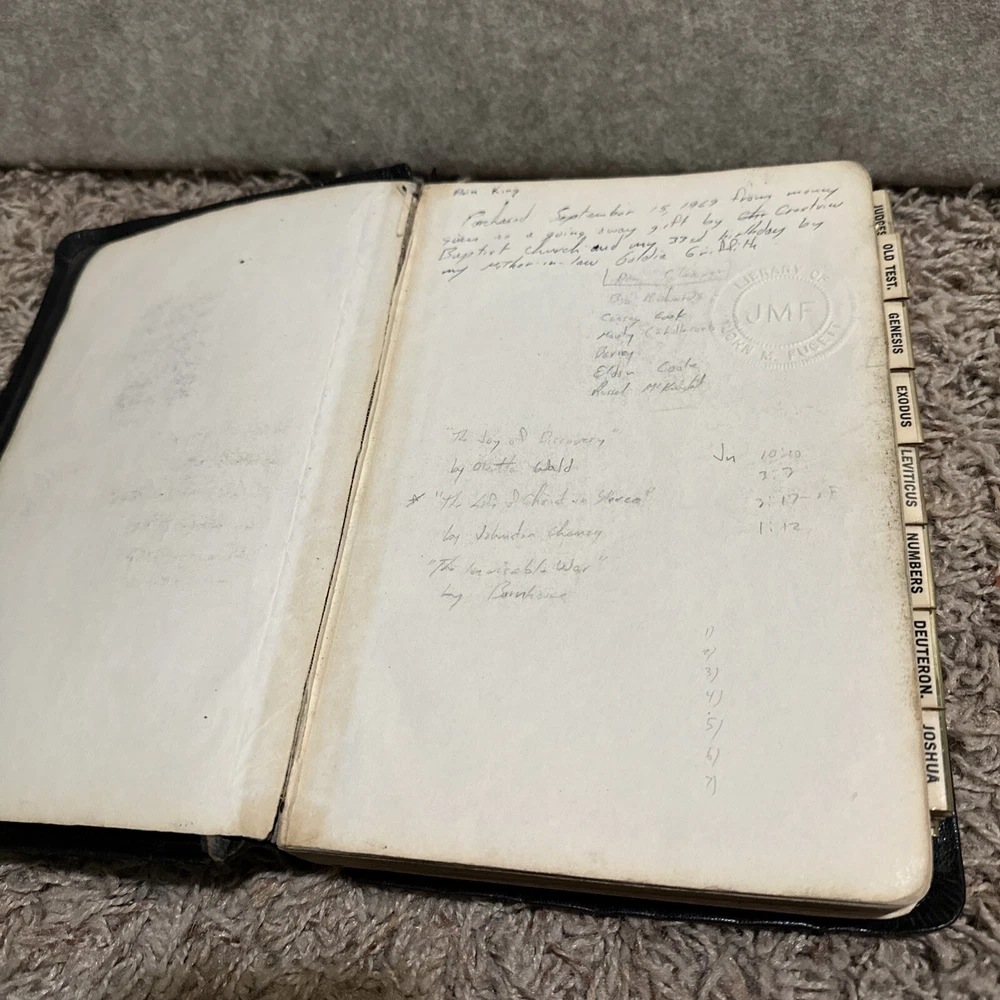 King
Purchased September 15, 1969 from money
given as a going away gift by Crestview
Baptist Church and my 33rd birthday by
my mother-in-law Goldie Griffith
LIBRARY OF
JMF
JOHN M. FUGETT
Bob Richards
Casey Cook
Marty
Eldon Coate
Russell McKnight
"The Joy of Discovery"
by Wald
Jn 10:10
3:3
* "The Life of Christ in Stereo"
3:17
by Johnston Cheney
1:12
"The Invisible War"
by Barnhouse
1)
2)
3)
4)
5)
6)
7)
JUDGES
OLD TEST.
GENESIS
EXODUS
LEVITICUS
NUMBERS
DEUTERON.
JOSHUA